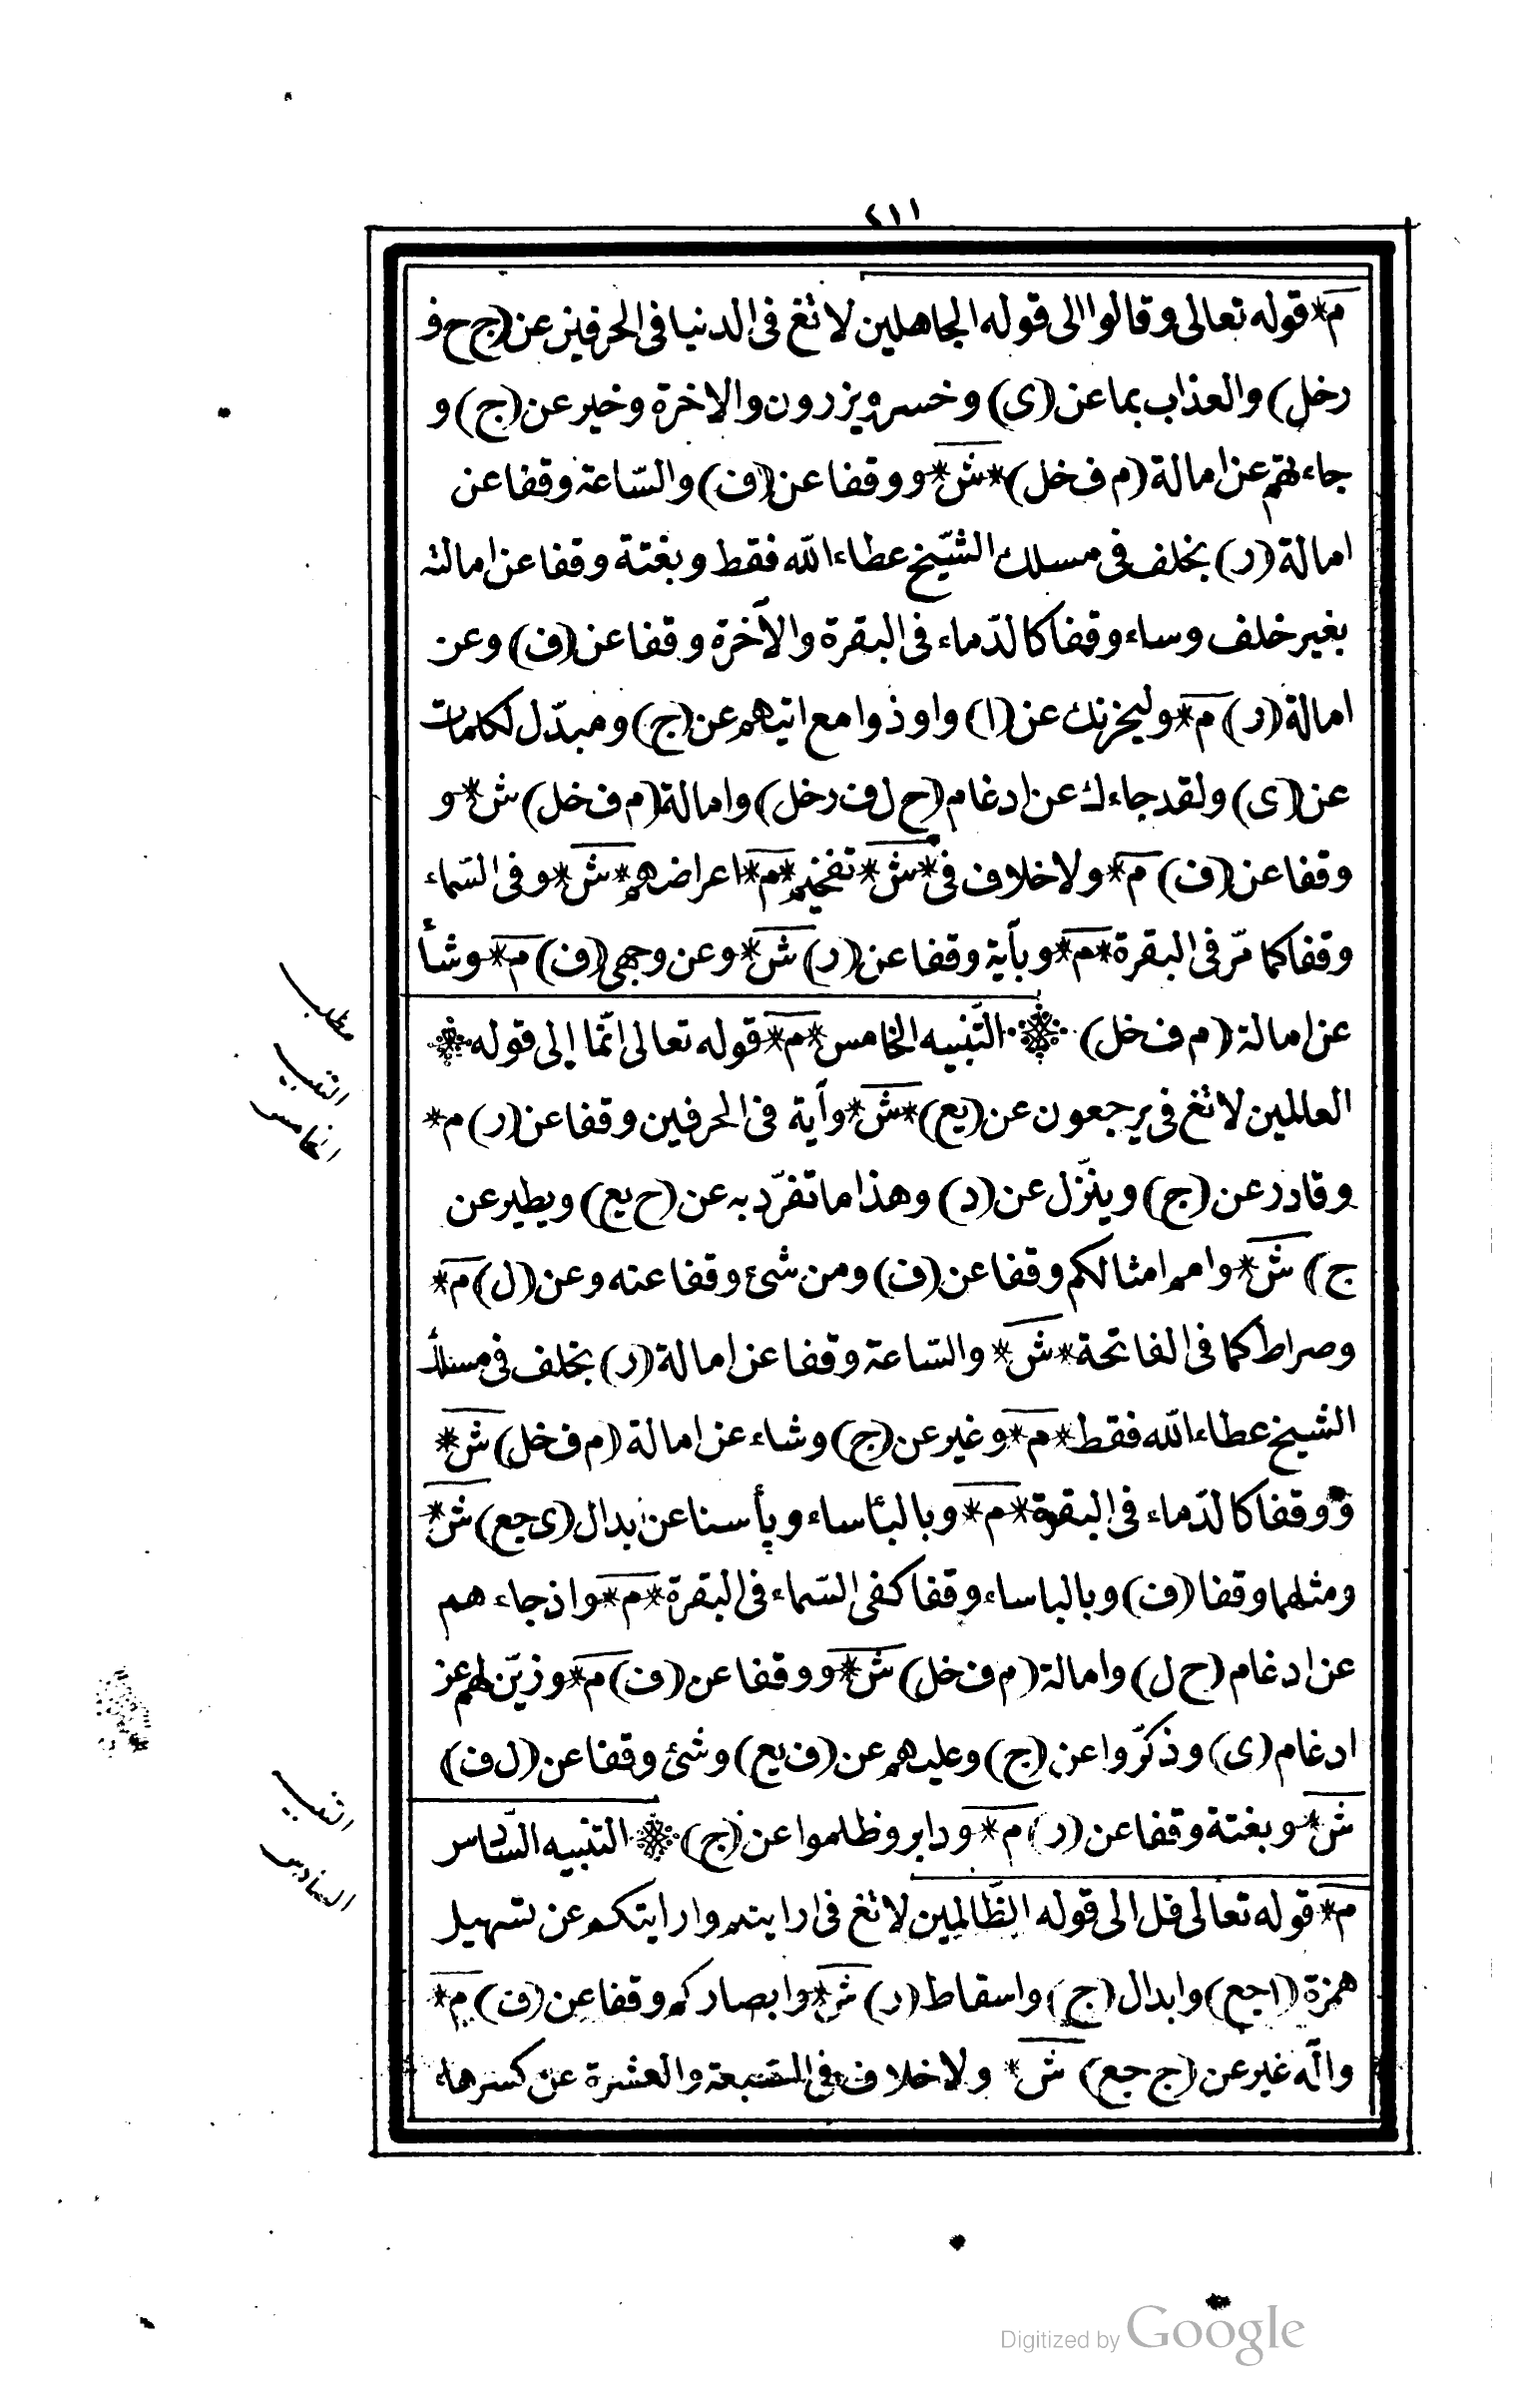 ٤١١
م * قوله تعالى وقالوا الى قوله الجاهلين لا ثغ فى الدنيا فى الحرفين عن (ج ح ف
رخل) والعذاب بما عن (ى) وخسر ويزرون والاخرة وخير عن (ج) و
جاءتهم عن امالة (م ف خل) * ش * ووقفا عن (ف) والسّاعة وقفا عن
امالة (ر) بخلف فى مسلك الشّيخ عطاء الله فقط وبغتة وقفا عن امالته
بغير خلف وساء وقفا كالدّماء فى البقرة والآخرة وقفا عن (ف) وعن
امالة (ر) م * وليحزنك عن (ا) واوذوا مع اتيهم عن (ج) ومبدّل لكلمات
عن (ى) ولقد جاءك عن ادغام (ح ل ف رخل) وامالة (م ف خل) ش * و
وقفا عن (ف) م * ولا خلاف فى * ش * تفخيم * م * اعراضهم * ش * وفى السّماء
وقفا كما مرّ فى البقرة * م * وبآية وقفا عن (ر) ش * وعن وجهى (ف) م * وشأ
عن امالة (م ف خل) التّنبيه الخامس * م * قوله تعالى انّما إلى قوله
العالمين لا ثغ فى يرجعون عن (يع) * ش * وآية فى الحرفين وقفا عن (ر) م *
وقادر عن (ج) وينزّل عن (د) وهذا ما تفرّد به عن (ح يع) ويطير عن
ج) ش * وامم امثالكم وقفا عن (ف) ومن شئ وقفا عنه وعن (ل) م *
وصراط كما فى الفاتحة * ش * والسّاعة وقفا عن امالة (ر) بخلف فى مسلك
الشيخ عطاء الله فقط * م * وغير عن (ج) وشاء عن امالة (م ف خل) ش *
ووقفا كالدّماء فى البقرة * م * وبالبأساء وبأسنا عن ابدال (ى جع) ش *
ومثلهما وقفا (ف) وبالباساء وقفا كفى السّماء فى البقرة * م * واذ جاءهم
عن ادغام (ح ل) وامالة (م ف خل) ش * ووقفا عن (ف) م * وزيّن لهم عن
ادغام (ى) وذكّروا عن (ج) وعليهم عن (ف يع) وشئ وقفا عن (ل ف)
ش * وبغتة وقفا عن (ر) م * ودابر وظلموا عن (ج) التنبيه السّادس
م * قوله تعالى قل الى قوله الظّالمين لا ثغ فى ارايتم وارايتكم عن تسهيل
همزة (ا جع) وابدال (ج) واسقاط (ر) ش * وابصاركم وقفا عن (ف) م *
والّه غير عن (ج جع) ش * ولا خلاف فى السّبعة والعشرة عن كسر هاء
مطلب
التنبيه
الخامس
التنبيه
السادس
Digitized by Google